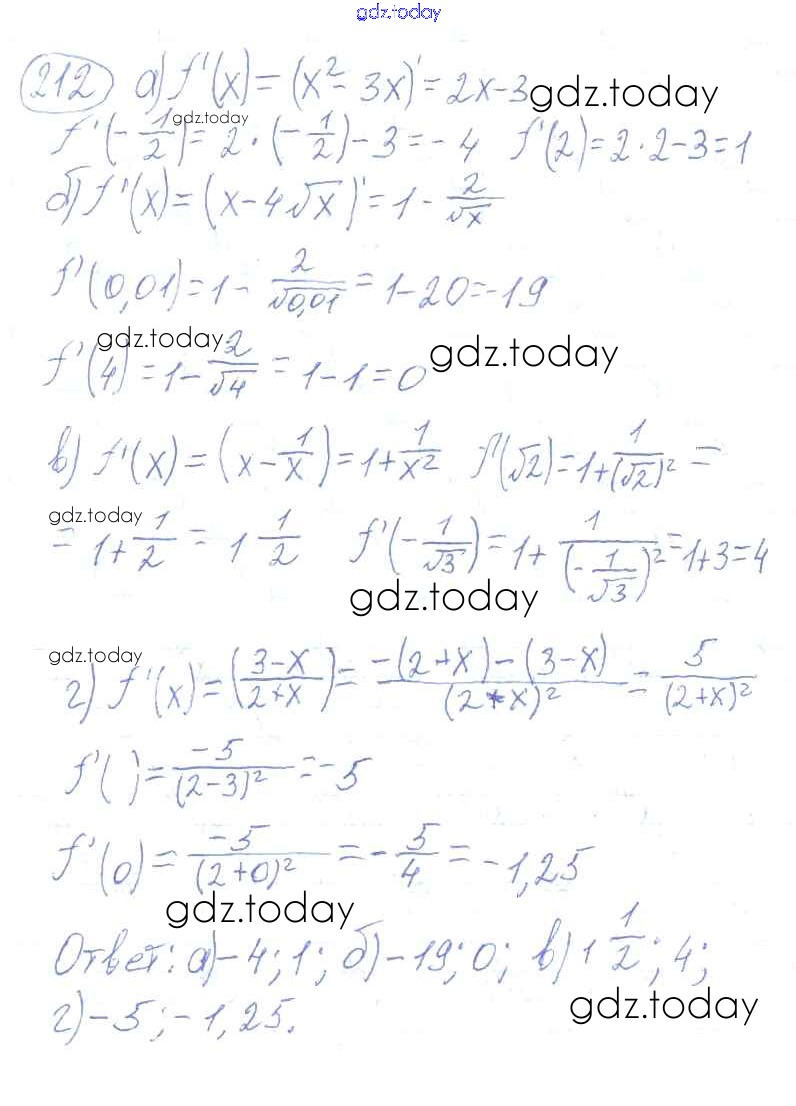 gdz.today
212 а) f'(x) = (x² - 3x)' = 2x-3 gdz.today
gdz.today
f'(-1/2) = 2·(-1/2) - 3 = -4 f'(2) = 2·2-3 = 1
б) f'(x) = (x-4√x)' = 1 - 2/√x
f'(0,01) = 1 - 2/√0,01 = 1-20 = -19
gdz.today gdz.today
f'(4) = 1 - 2/√4 = 1-1 = 0
в) f'(x) = (x - 1/x)' = 1 + 1/x² f'(√2) = 1 + 1/(√2)² =
gdz.today
= 1 + 1/2 = 1 1/2 f'(-1/√3) = 1 + 1/(-1/√3)² = 1+3 = 4
gdz.today
gdz.today
г) f'(x) = ((3-x)/(2+x))' = (-(2+x)-(3-x))/(2+x)² = 5/(2+x)²
f'( ) = -5/(2-3)² = -5
f'(0) = -5/(2+0)² = -5/4 = -1,25
gdz.today
Ответ: а) -4; 1; б) -19; 0; в) 1 1/2; 4;
г) -5; -1,25.
gdz.today